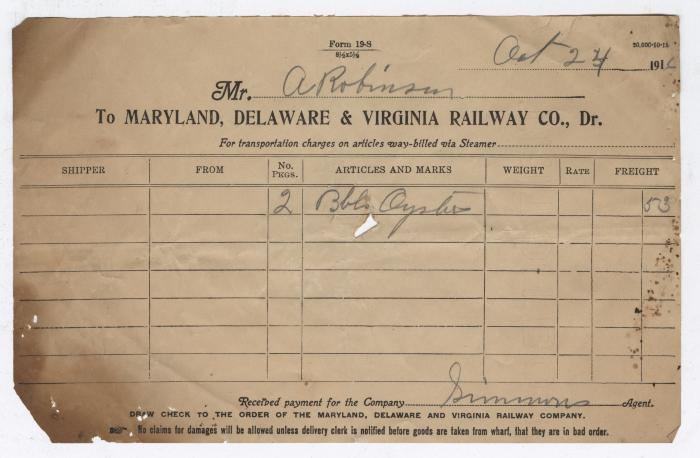 Form 19-S
8½x5½
20,000-10-15
Oct 24 1916
Mr. A Robinson
To MARYLAND, DELAWARE & VIRGINIA RAILWAY CO., Dr.
For transportation charges on articles way-billed via Steamer
SHIPPER FROM No. PKGS. ARTICLES AND MARKS WEIGHT RATE FREIGHT
2 Bbls Oysters 53
Received payment for the Company Simmons Agent.
DRAW CHECK TO THE ORDER OF THE MARYLAND, DELAWARE AND VIRGINIA RAILWAY COMPANY.
No claims for damages will be allowed unless delivery clerk is notified before goods are taken from wharf, that they are in bad order.